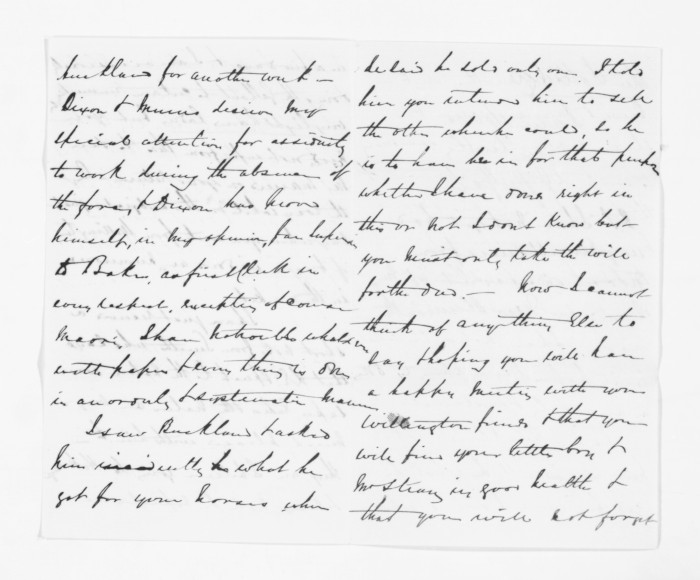 Auckland for another week —
Dixon & Munro deserve my
special attention for assiduity
to work during the absence of
the foray, & Dixon has prove
himself, in my opinion, far superior
to Baker, as first Clerk in
every respect, excepting of course
Maori, I have no trouble whatever
with papers & every thing is done
in an orderly & systematic manner
I saw Buckland & asked
him incidently what he
got for your horses when
he said he sold only one. I told
him you intended him to sell
the other when he could, so he
is to have him in for that purpose
whether I have done right in
this or not I dont know but
you must only take the will
for the deed. — Now I cannot
think of any thing Else to
say & hoping you will have
a happy meeting with your
Wellington friends & that you
will find your little boy &
Mr Strang in good health &
that you will not forget